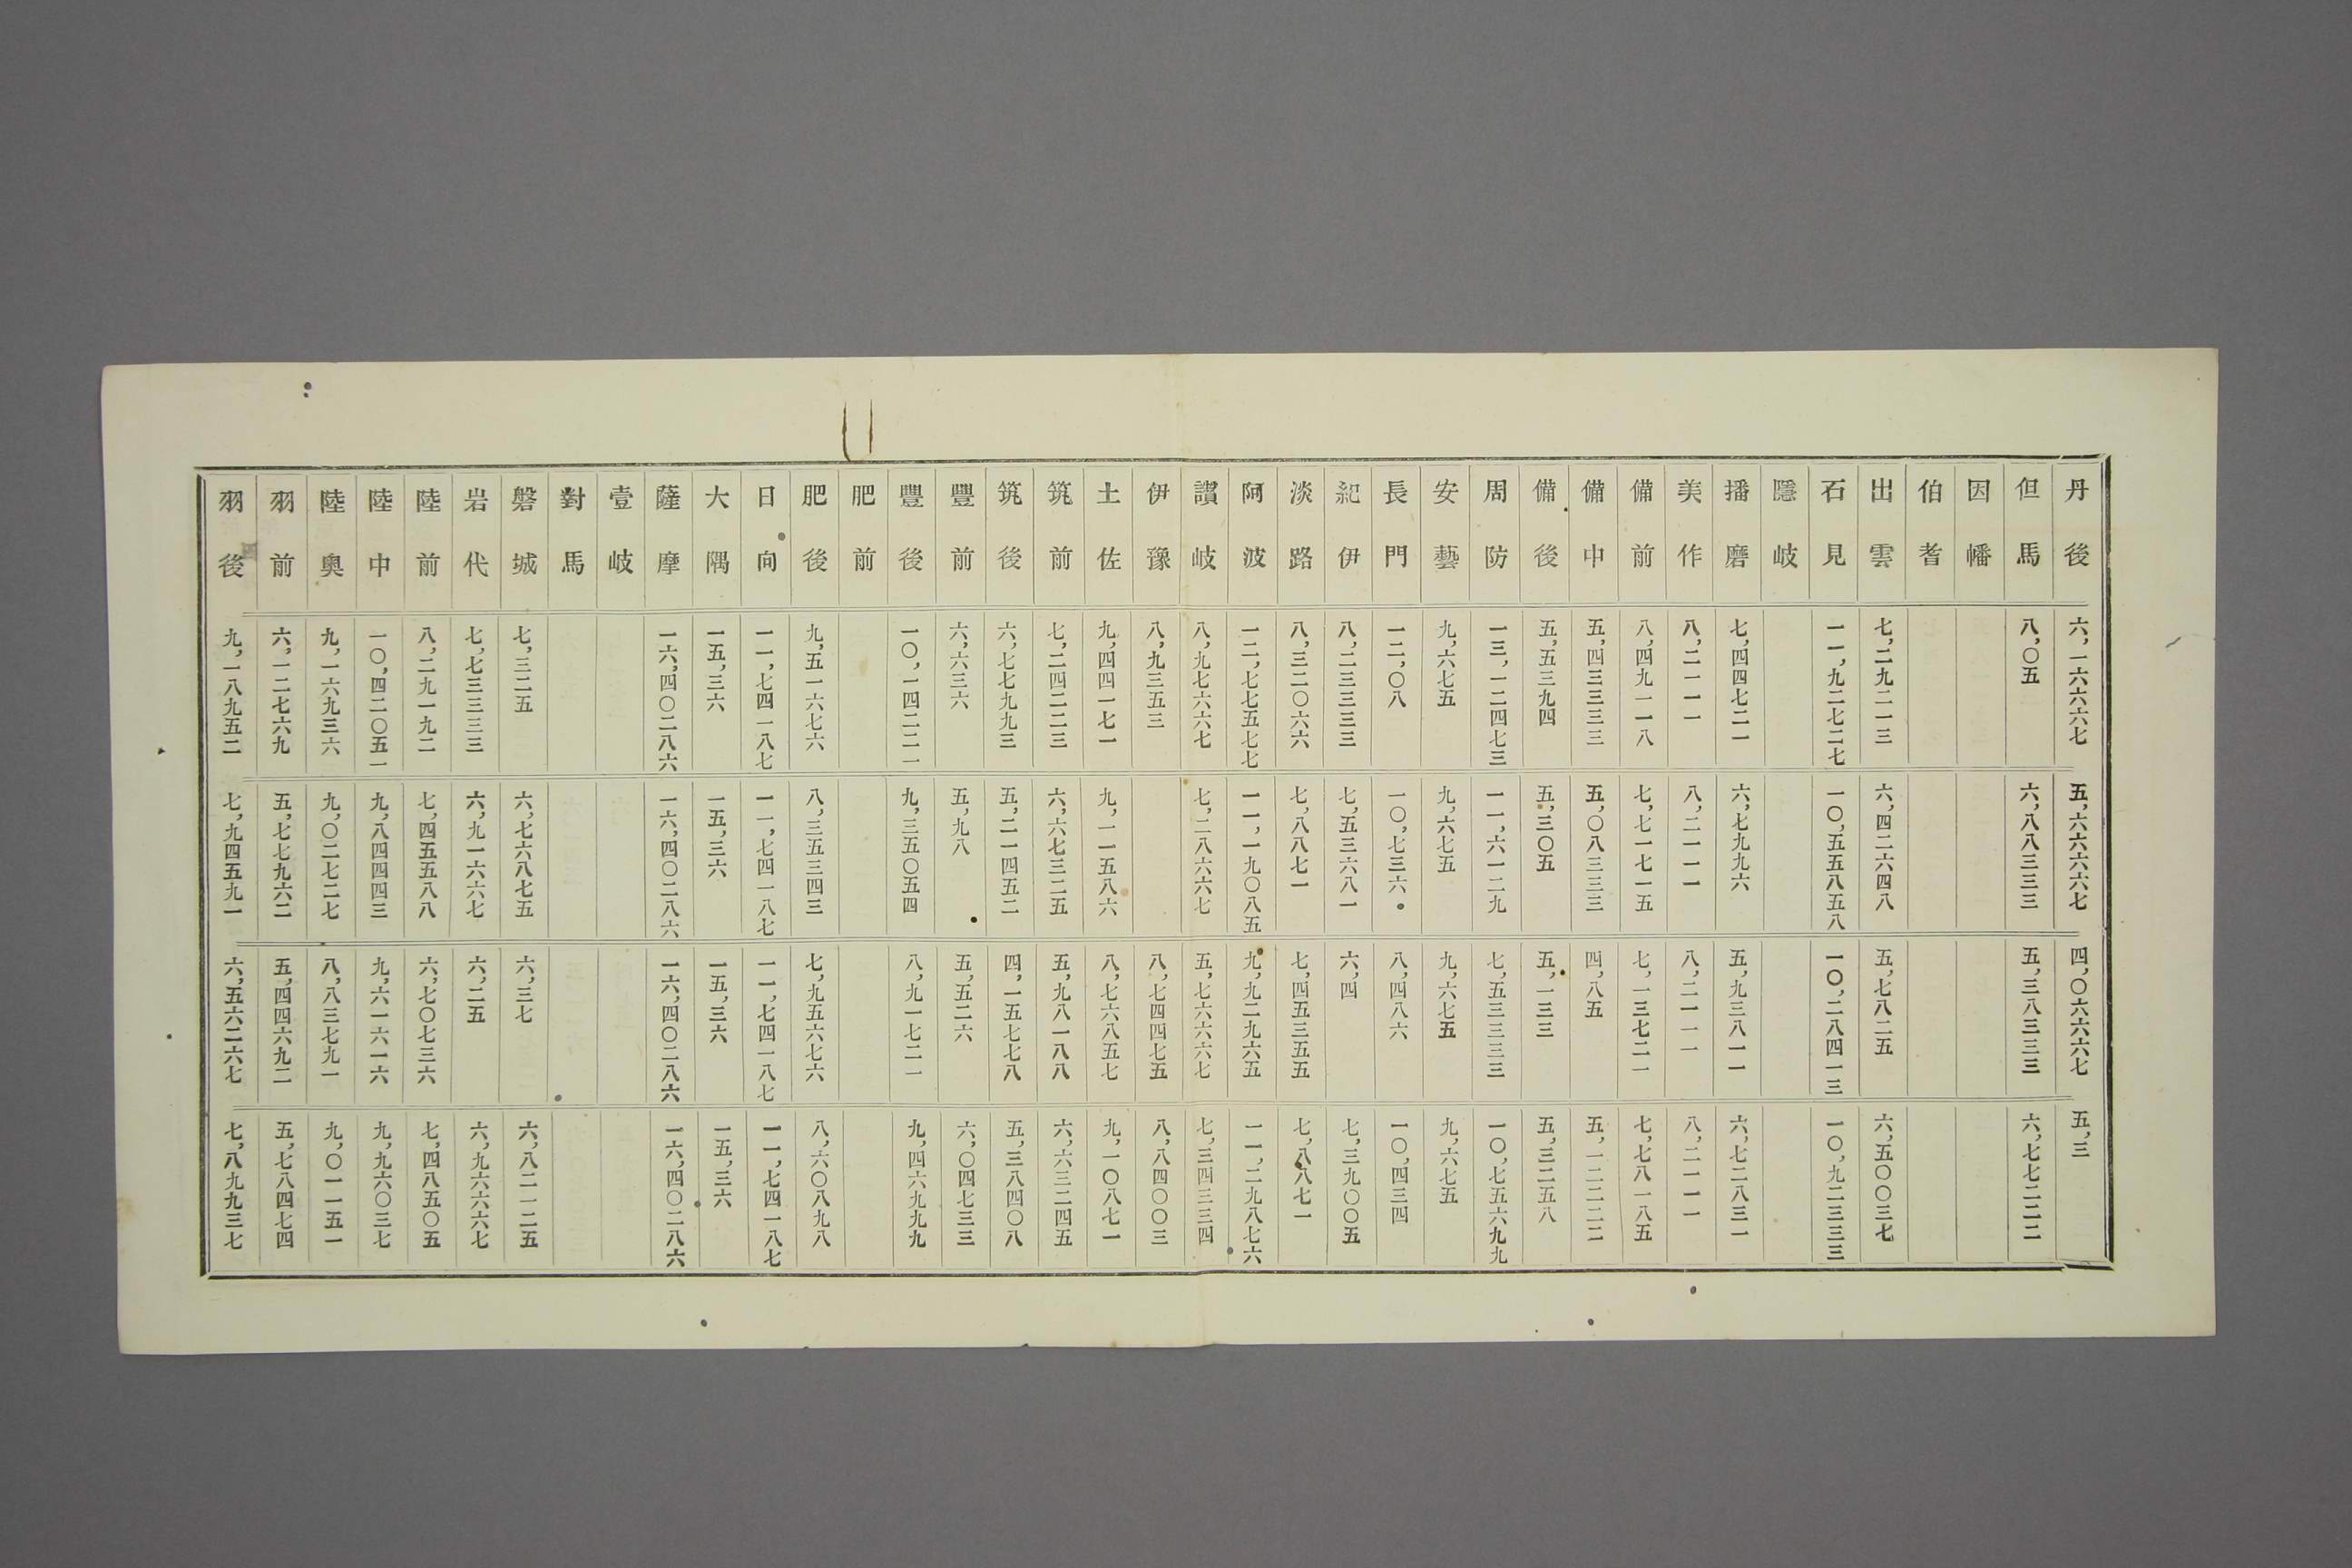 丹後 六,一六六六六七 五,六六六六六七 四,〇六六六六七 五,三
但馬 八,〇五 六,八八三三三 五,三八三三三 六,七七二二二
因幡
伯耆
出雲 七,二九二一三 六,四二六四八 五,七八二五 六,五〇〇三七
石見 一一,九二七二七 一〇,五五八五八 一〇,二八四一三 一〇,九二三三三
隱岐
播磨 七,四四七二一 六,七九九六 五,九三八一一 六,七二八三一
美作 八,二一一一 八,二一一一 八,二一一一 八,二一一一
備前 八,四九一一八 七,七一七一五 七,一三七二一 七,七八一八五
備中 五,四三三三三 五,〇八三三三 四,八五 五,一二二二二
備後 五,五三九四 五,三〇五 五,一三三 五,三二五八
周防 一三,一二四七三 一一,六一二九 七,五三三三三 一〇,七五六九九
安藝 九,六七五 九,六七五 九,六七五 九,六七五
長門 一二,〇八 一〇,七三六 八,四八六 一〇,四三四
紀伊 八,二三三三三 七,五三六八一 六,四 七,三九〇〇五
淡路 八,三二〇六六 七,八八七一 七,四五三五五 七,八八七一
阿波 一二,七七五七七 一一,一九〇八五 九,九二九六五 一一,二九八七六
讃岐 八,九七六六七 七,二八六六七 五,七六六六七 七,三四三三四
伊豫 八,九三五三 八,七四四七五 八,八四〇〇三
土佐 九,四四一七一 九,一一五八六 八,七六八五七 九,一〇八七一
筑前 七,二四二二三 六,六七三二五 五,九八一八八 六,六三二四五
筑後 六,七七九九三 五,二一四五二 四,一五七七八 五,三八四〇八
豐前 六,六三六 五,九八 五,五二六 六,〇四七三三
豐後 一〇,一四二二一 九,三五〇五四 八,九一七二一 九,四六九九九
肥前
肥後 九,五一六七六 八,三五三四三 七,九五六七六 八,六〇八九八
日向 一一,七四一八七 一一,七四一八七 一一,七四一八七 一一,七四一八七
大隅 一五,三六 一五,三六 一五,三六 一五,三六
薩摩 一六,四〇二八六 一六,四〇二八六 一六,四〇二八六 一六,四〇二八六
壹岐
對馬
磐城 七,三二五 六,七六八七五 六,三七 六,八二一二五
岩代 七,七三三三三 六,九一六六七 六,二五 六,九六六六七
陸前 八,二九一九二 七,四五五八八 六,七〇七三六 七,四八五〇五
陸中 一〇,四二〇五一 九,八四四四三 九,六一六一六 九,九六〇三七
陸奥 九,一六九三六 九,〇二七二七 八,八三七九一 九,〇一一五一
羽前 六,一二七六九 五,七七九六二 五,四四六九二 五,七八四七四
羽後 九,一八九五二 七,九四五九一 六,五六二六七 七,八九九三七